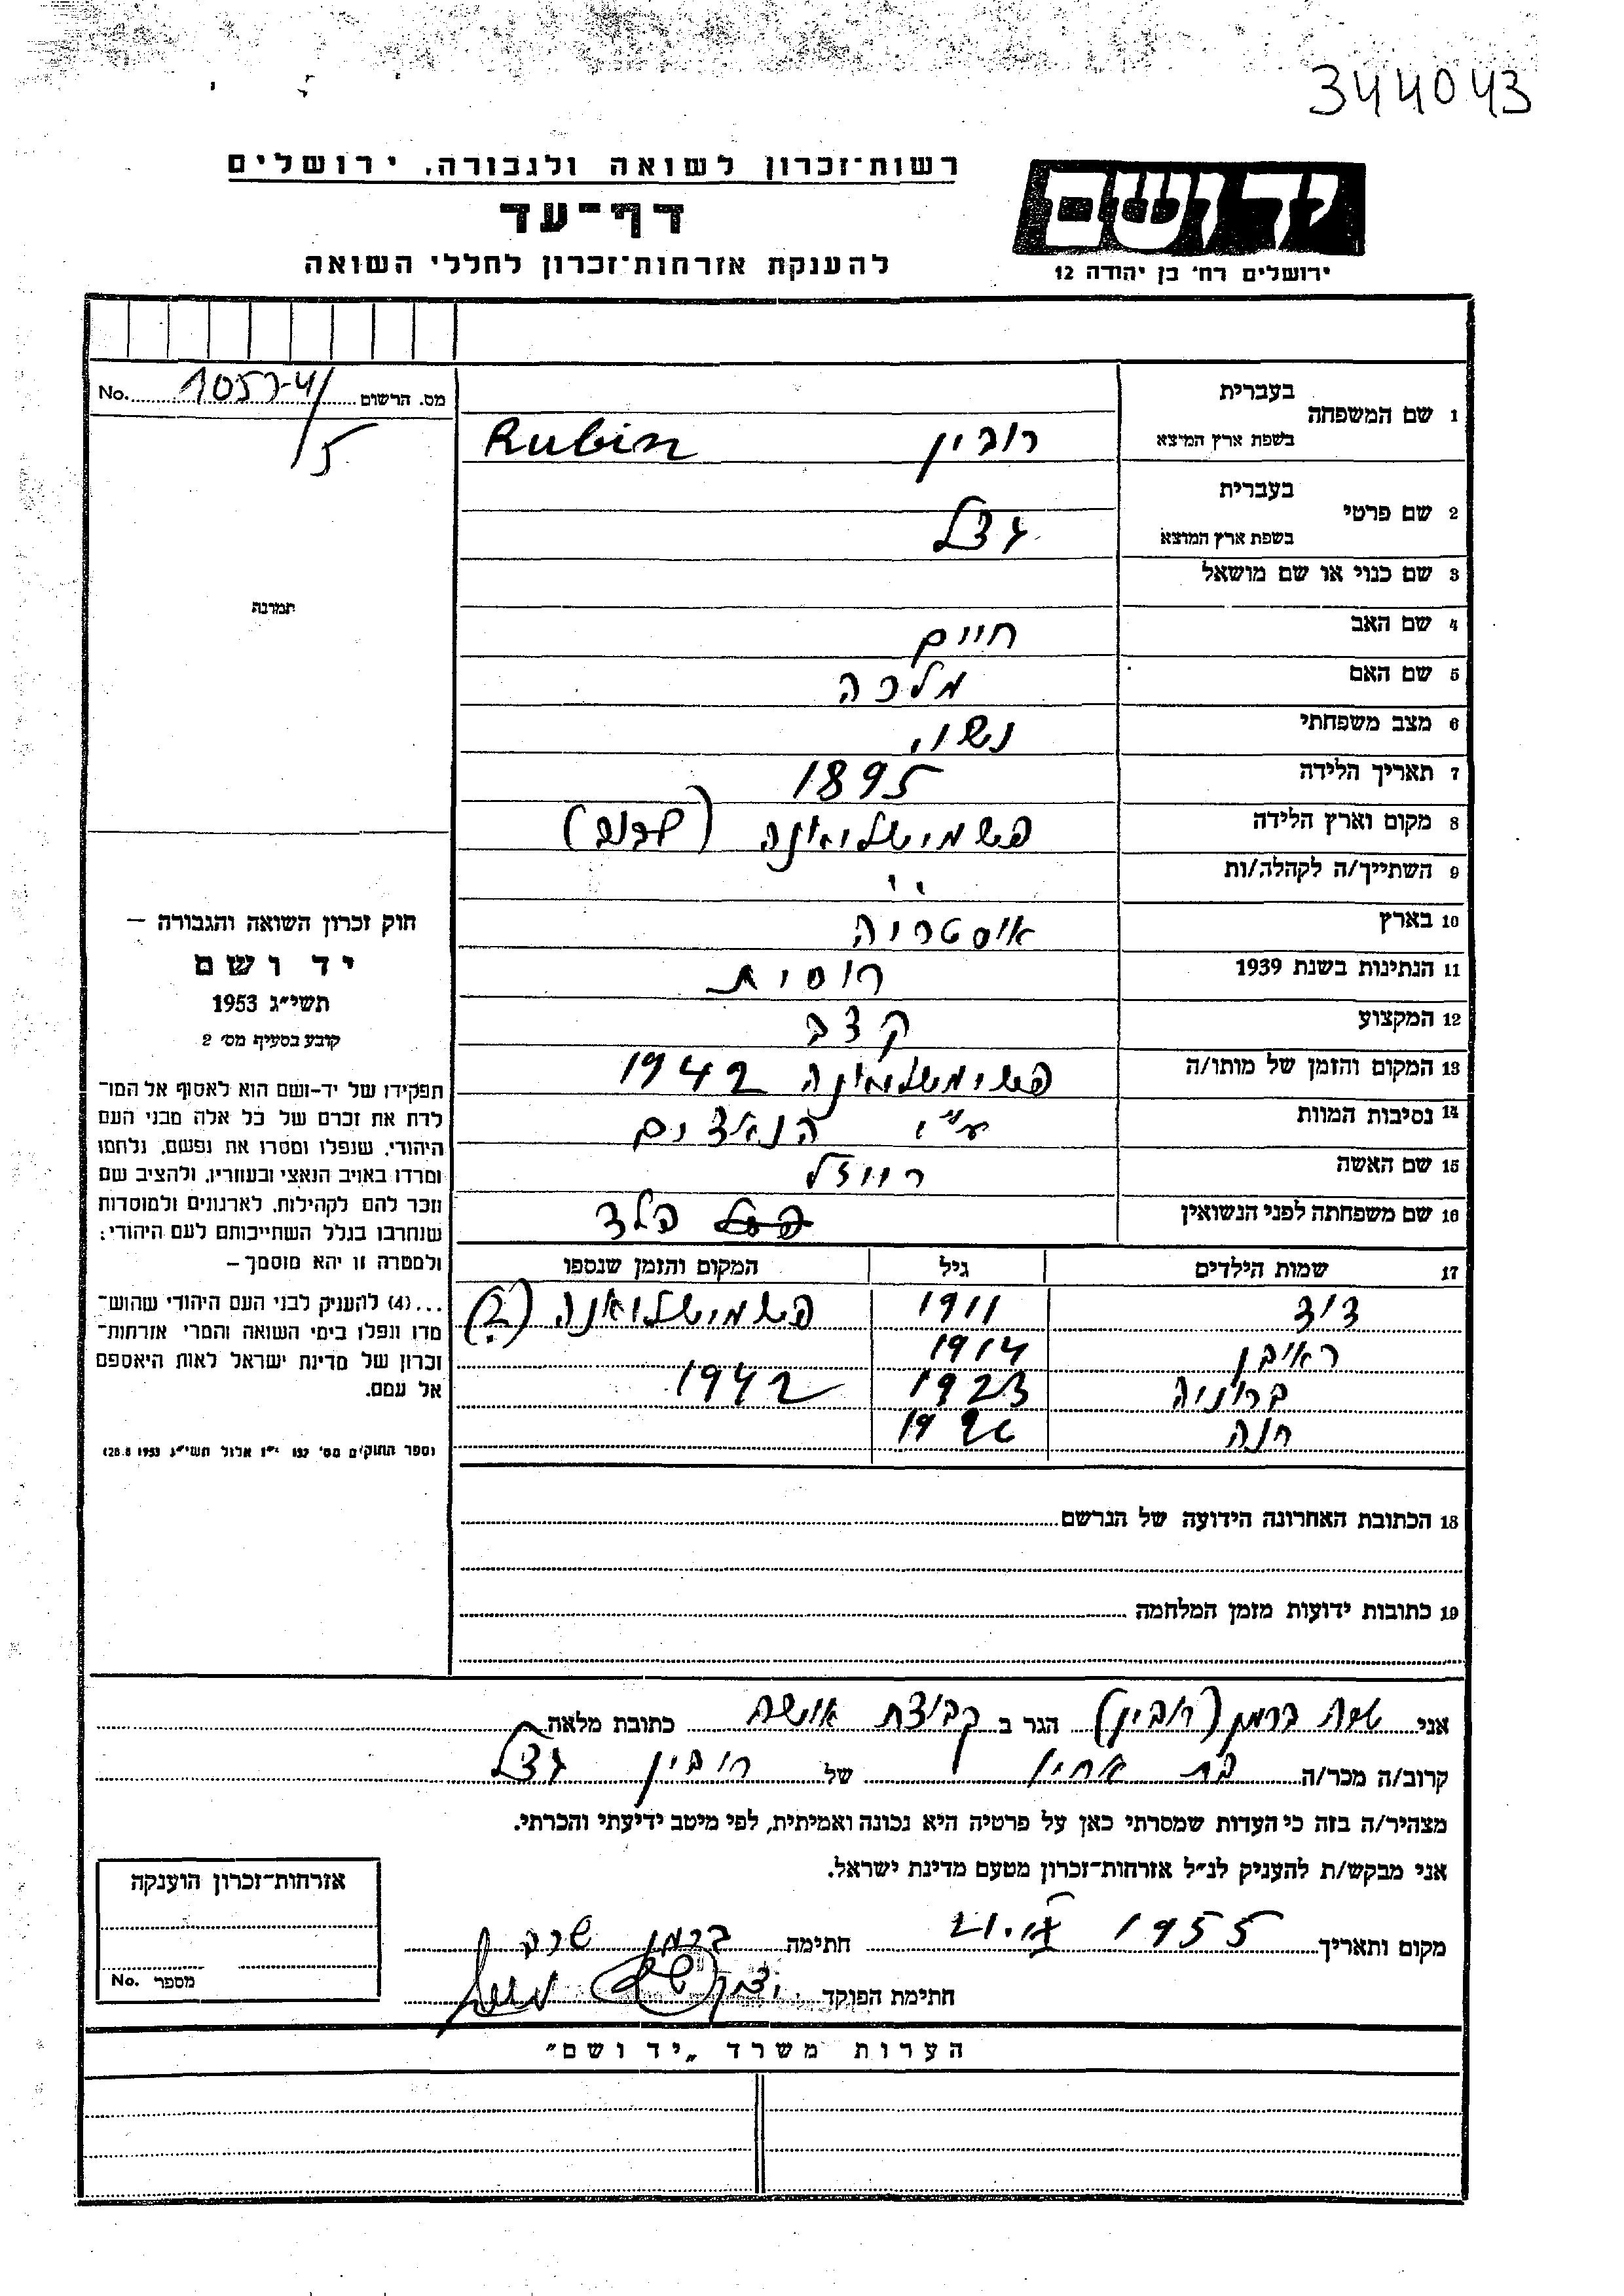 344043
רשות־זכרון לשואה ולגבורה, ירושלים
דף־עד
להענקת אזרחות־זכרון לחללי השואה
יד ושם
ירושלים רח' בן יהודה 12
מס. הרשום No. 1057-4/5
1 שם המשפחה
בעברית
בשפת ארץ המוצא
רובין Rubin
2 שם פרטי
בעברית
בשפת ארץ המוצא
גצל
3 שם כנוי או שם מושאל
4 שם האב חיים
5 שם האם מלכה
6 מצב משפחתי נשוי
7 תאריך הלידה 1895
8 מקום וארץ הלידה פשמישלואנה (לבוב)
9 השתייך/ה לקהלה/ות "
10 בארץ אוסטריה
11 הנתינות בשנת 1939 רוסית
12 המקצוע קצב
13 המקום והזמן של מותו/ה פשימשלואנה 1942
14 נסיבות המוות ע"י הנאצים
15 שם האשה רויזל
16 שם משפחתה לפני הנשואין הלד
17 שמות הילדים גיל המקום והזמן שנספו
דוד 1911 פשמישלואנה (?)
ראובן 1914
ברוניה 1923 1942
חנה 1926
18 הכתובת האחרונה הידועה של הנרשם
19 כתובות ידועות מזמן המלחמה
תמונה
חוק זכרון השואה והגבורה –
יד ושם
תשי"ג 1953
קובע בסעיף מס' 2
תפקידו של יד־ושם הוא לאסוף אל המו־
לדת את זכרם של כל אלה מבני העם
היהודי, שנפלו ומסרו את נפשם, נלחמו
ומרדו באויב הנאצי ובעוזריו, ולהציב שם
וזכר להם לקהילות, לארגונים ולמוסדות
שנחרבו בגלל השתייכותם לעם היהודי;
ולמטרה זו יהא מוסמך –
...(4) להעניק לבני העם היהודי שהוש־
מדו ונפלו בימי השואה והמרי אזרחות־
זכרון של מדינת ישראל לאות היאספם
אל עמם.
(ספר החוקים מס' 132 י"ז אלול תשי"ג 28.8.1953)
אני ברמן (רובין) הגר ב קבוצת אושה כתובת מלאה
קרוב/ה מכר/ה בת אחיו של רובין גצל
מצהיר/ה בזה כי העדות שמסרתי כאן על פרטיה היא נכונה ואמיתית, לפי מיטב ידיעתי והכרתי.
אני מבקש/ת להעניק לנ"ל אזרחות־זכרון מטעם מדינת ישראל.
מקום ותאריך 1955 חתימה ברמן שרה
חתימת הפוקד
אזרחות־זכרון הוענקה
מספר No.
הערות משרד „יד ושם"